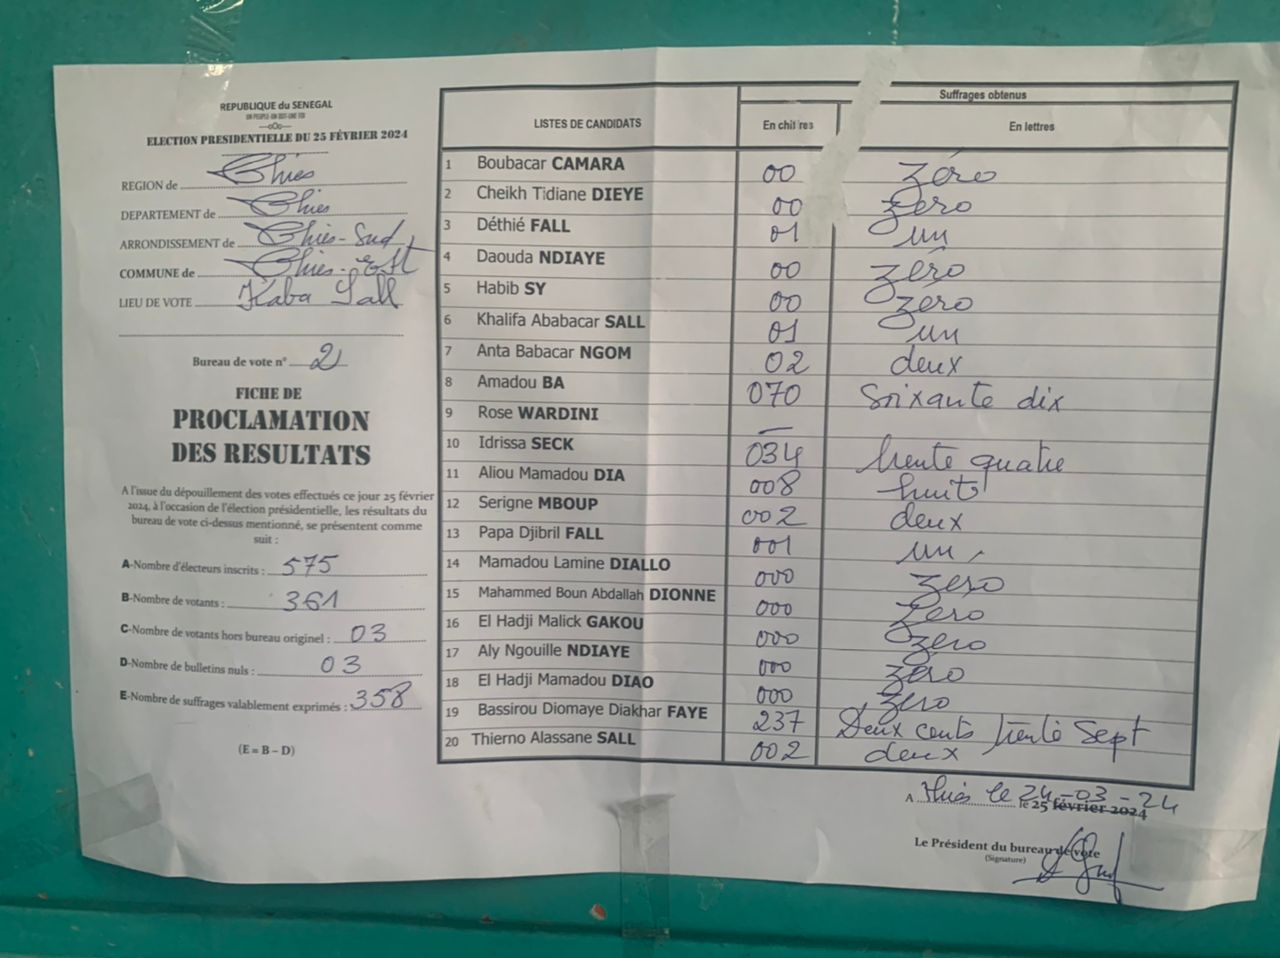 REPUBLIQUE du SENEGAL
UN PEUPLE-UN BUT-UNE FOI
—oOo—
ELECTION PRESIDENTIELLE DU 25 FÉVRIER 2024
REGION de Thiès
DEPARTEMENT de Thiès
ARRONDISSEMENT de Thiès-Sud
COMMUNE de Thiès-Est
LIEU DE VOTE Kaba Sall
Bureau de vote n° 2
FICHE DE
PROCLAMATION
DES RESULTATS
A l'issue du dépouillement des votes effectués ce jour 25 février
2024, à l'occasion de l'élection présidentielle, les résultats du
bureau de vote ci-dessus mentionné, se présentent comme
suit :
A-Nombre d'électeurs inscrits : 575
B-Nombre de votants : 361
C-Nombre de votants hors bureau originel : 03
D-Nombre de bulletins nuls : 03
E-Nombre de suffrages valablement exprimés : 358
(E = B – D)
LISTES DE CANDIDATS
Suffrages obtenus
En chiffres
En lettres
1 Boubacar CAMARA 00 zéro
2 Cheikh Tidiane DIEYE 00 zéro
3 Déthié FALL 01 un
4 Daouda NDIAYE 00 zéro
5 Habib SY 00 zéro
6 Khalifa Ababacar SALL 01 un
7 Anta Babacar NGOM 02 deux
8 Amadou BA 070 Soixante dix
9 Rose WARDINI —
10 Idrissa SECK 034 trente quatre
11 Aliou Mamadou DIA 008 huit
12 Serigne MBOUP 002 deux
13 Papa Djibril FALL 001 un
14 Mamadou Lamine DIALLO 000 zéro
15 Mahammed Boun Abdallah DIONNE 000 zéro
16 El Hadji Malick GAKOU 000 zéro
17 Aly Ngouille NDIAYE 000 zéro
18 El Hadji Mamadou DIAO 000 zéro
19 Bassirou Diomaye Diakhar FAYE 237 Deux cents trente Sept
20 Thierno Alassane SALL 002 deux
A Thiès le 24-03-24
le 25 février 2024
Le Président du bureau de vote
(Signature)